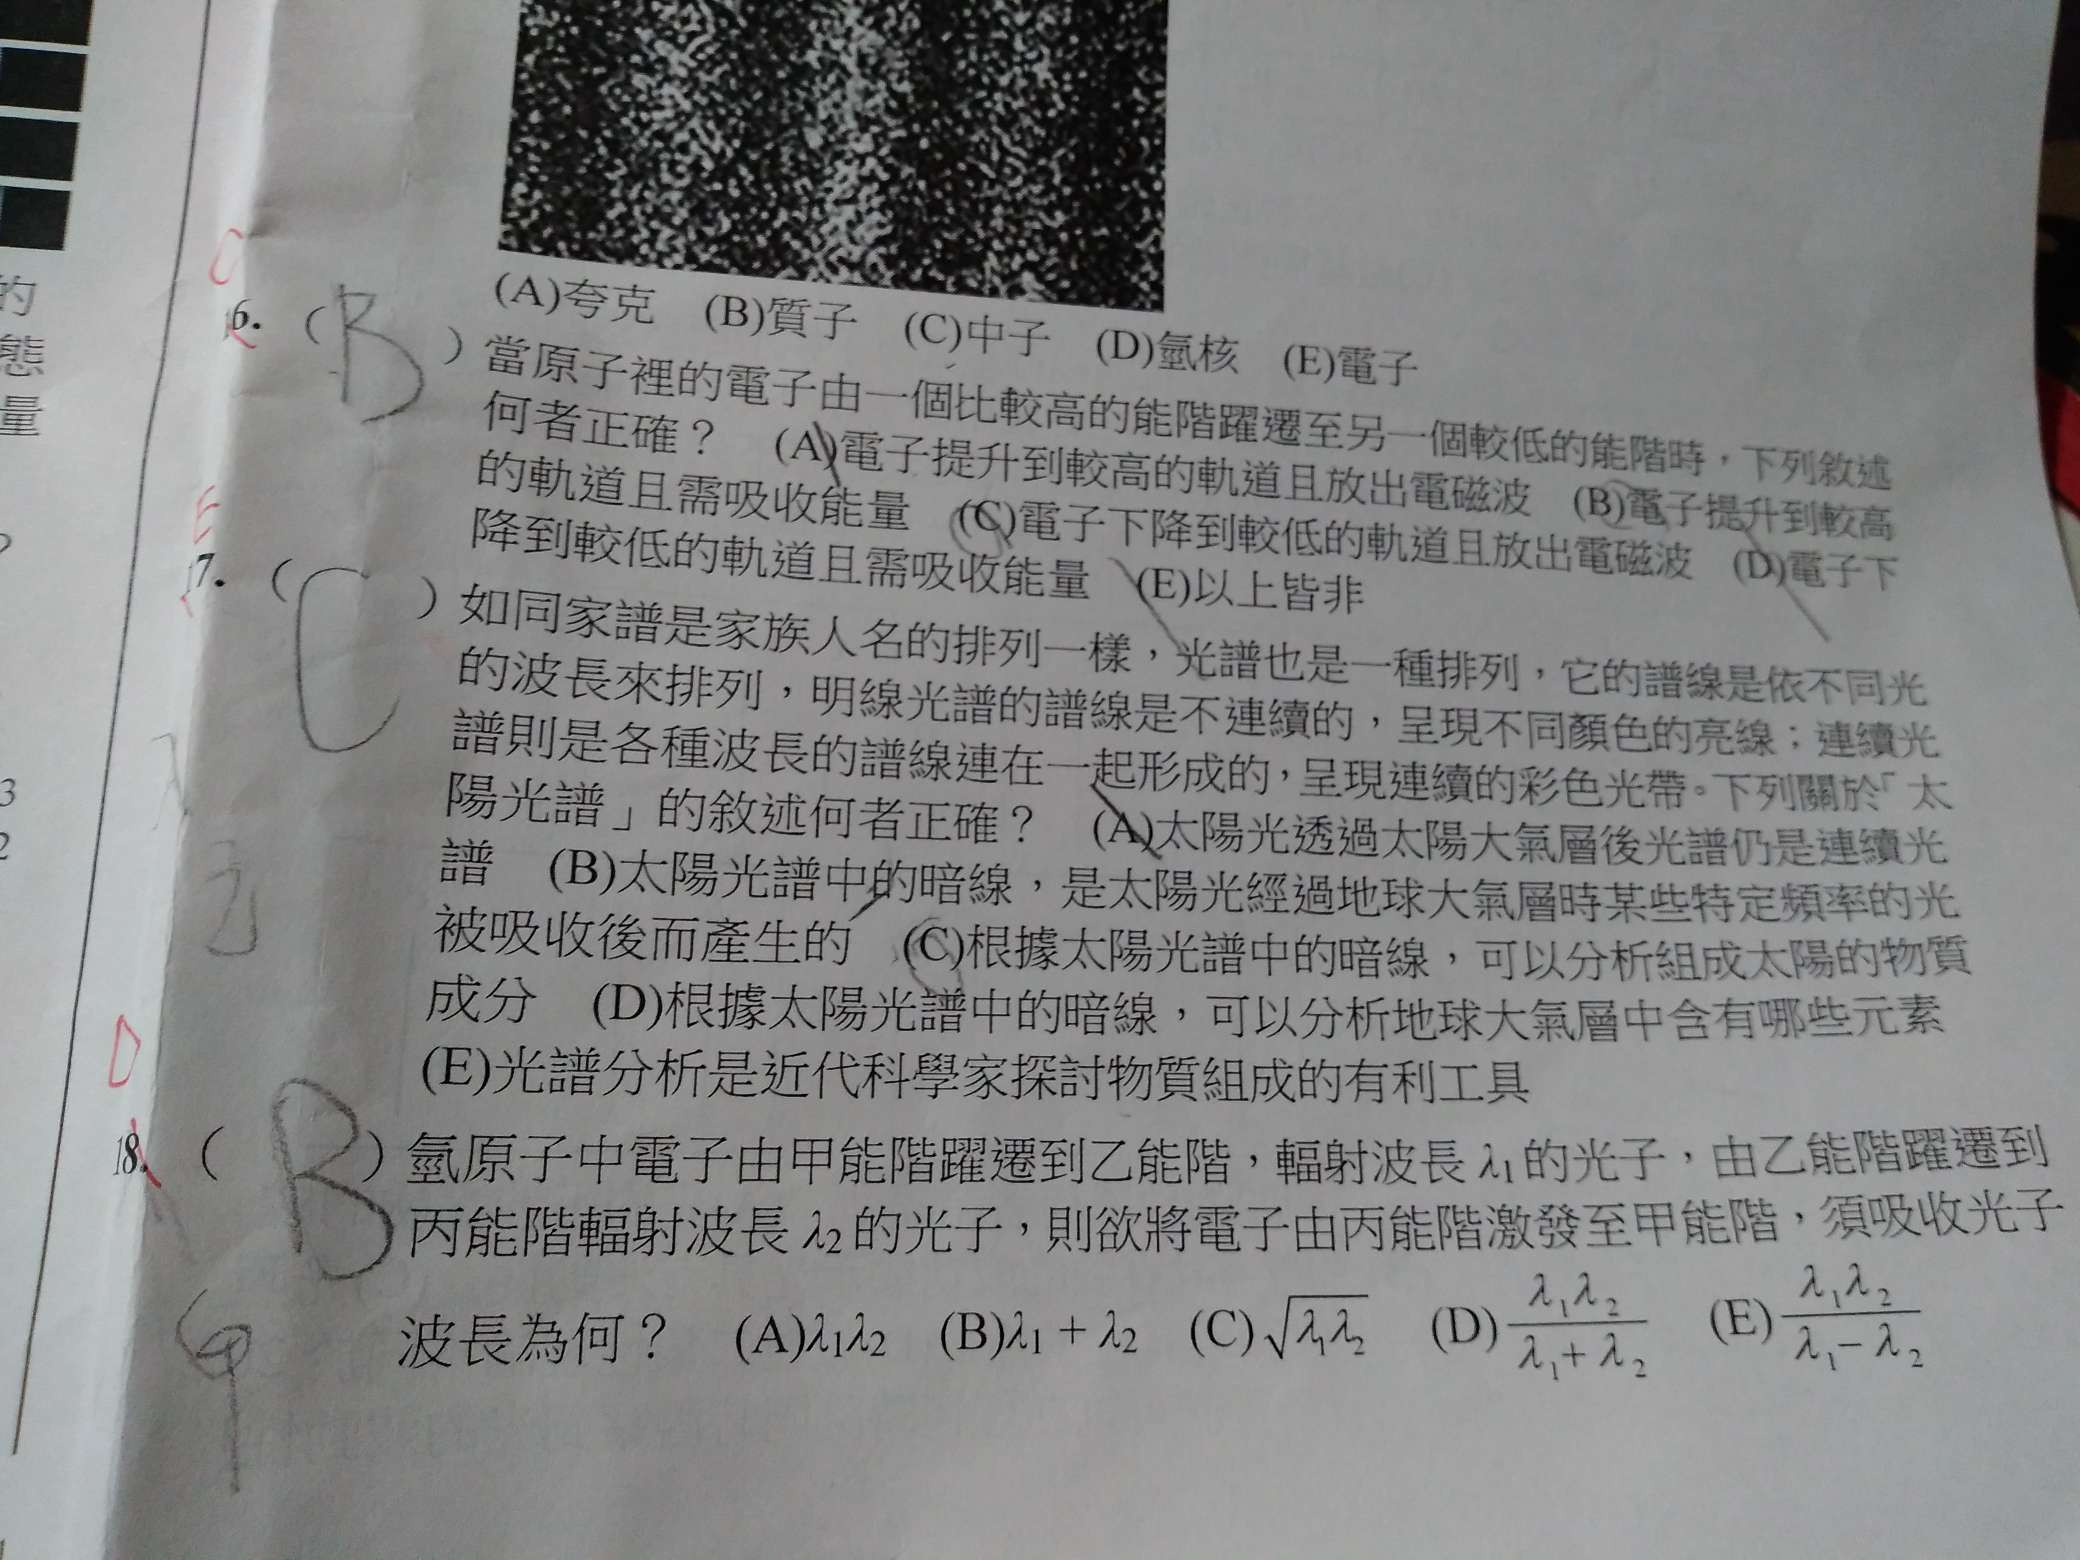 的
態
量
?
3
2
(A)夸克 (B)質子 (C)中子 (D)氫核 (E)電子
C
16. ( B ) 當原子裡的電子由一個比較高的能階躍遷至另一個較低的能階時，下列敘述
何者正確？ (A)電子提升到較高的軌道且放出電磁波 (B)電子提升到較高
的軌道且需吸收能量 (C)電子下降到較低的軌道且放出電磁波 (D)電子下
降到較低的軌道且需吸收能量 (E)以上皆非
E
17. ( C ) 如同家譜是家族人名的排列一樣，光譜也是一種排列，它的譜線是依不同光
的波長來排列，明線光譜的譜線是不連續的，呈現不同顏色的亮線；連續光
譜則是各種波長的譜線連在一起形成的，呈現連續的彩色光帶。下列關於「太
陽光譜」的敘述何者正確？ (A)太陽光透過太陽大氣層後光譜仍是連續光
譜 (B)太陽光譜中的暗線，是太陽光經過地球大氣層時某些特定頻率的光
被吸收後而產生的 (C)根據太陽光譜中的暗線，可以分析組成太陽的物質
成分 (D)根據太陽光譜中的暗線，可以分析地球大氣層中含有哪些元素
(E)光譜分析是近代科學家探討物質組成的有利工具
D
18. ( B ) 氫原子中電子由甲能階躍遷到乙能階，輻射波長 λ1 的光子，由乙能階躍遷到
丙能階輻射波長 λ2 的光子，則欲將電子由丙能階激發至甲能階，須吸收光子
波長為何？ (A)λ1λ2 (B)λ1 + λ2 (C)√λ1λ2 (D) λ1λ2 / λ1+λ2 (E) λ1λ2 / λ1−λ2